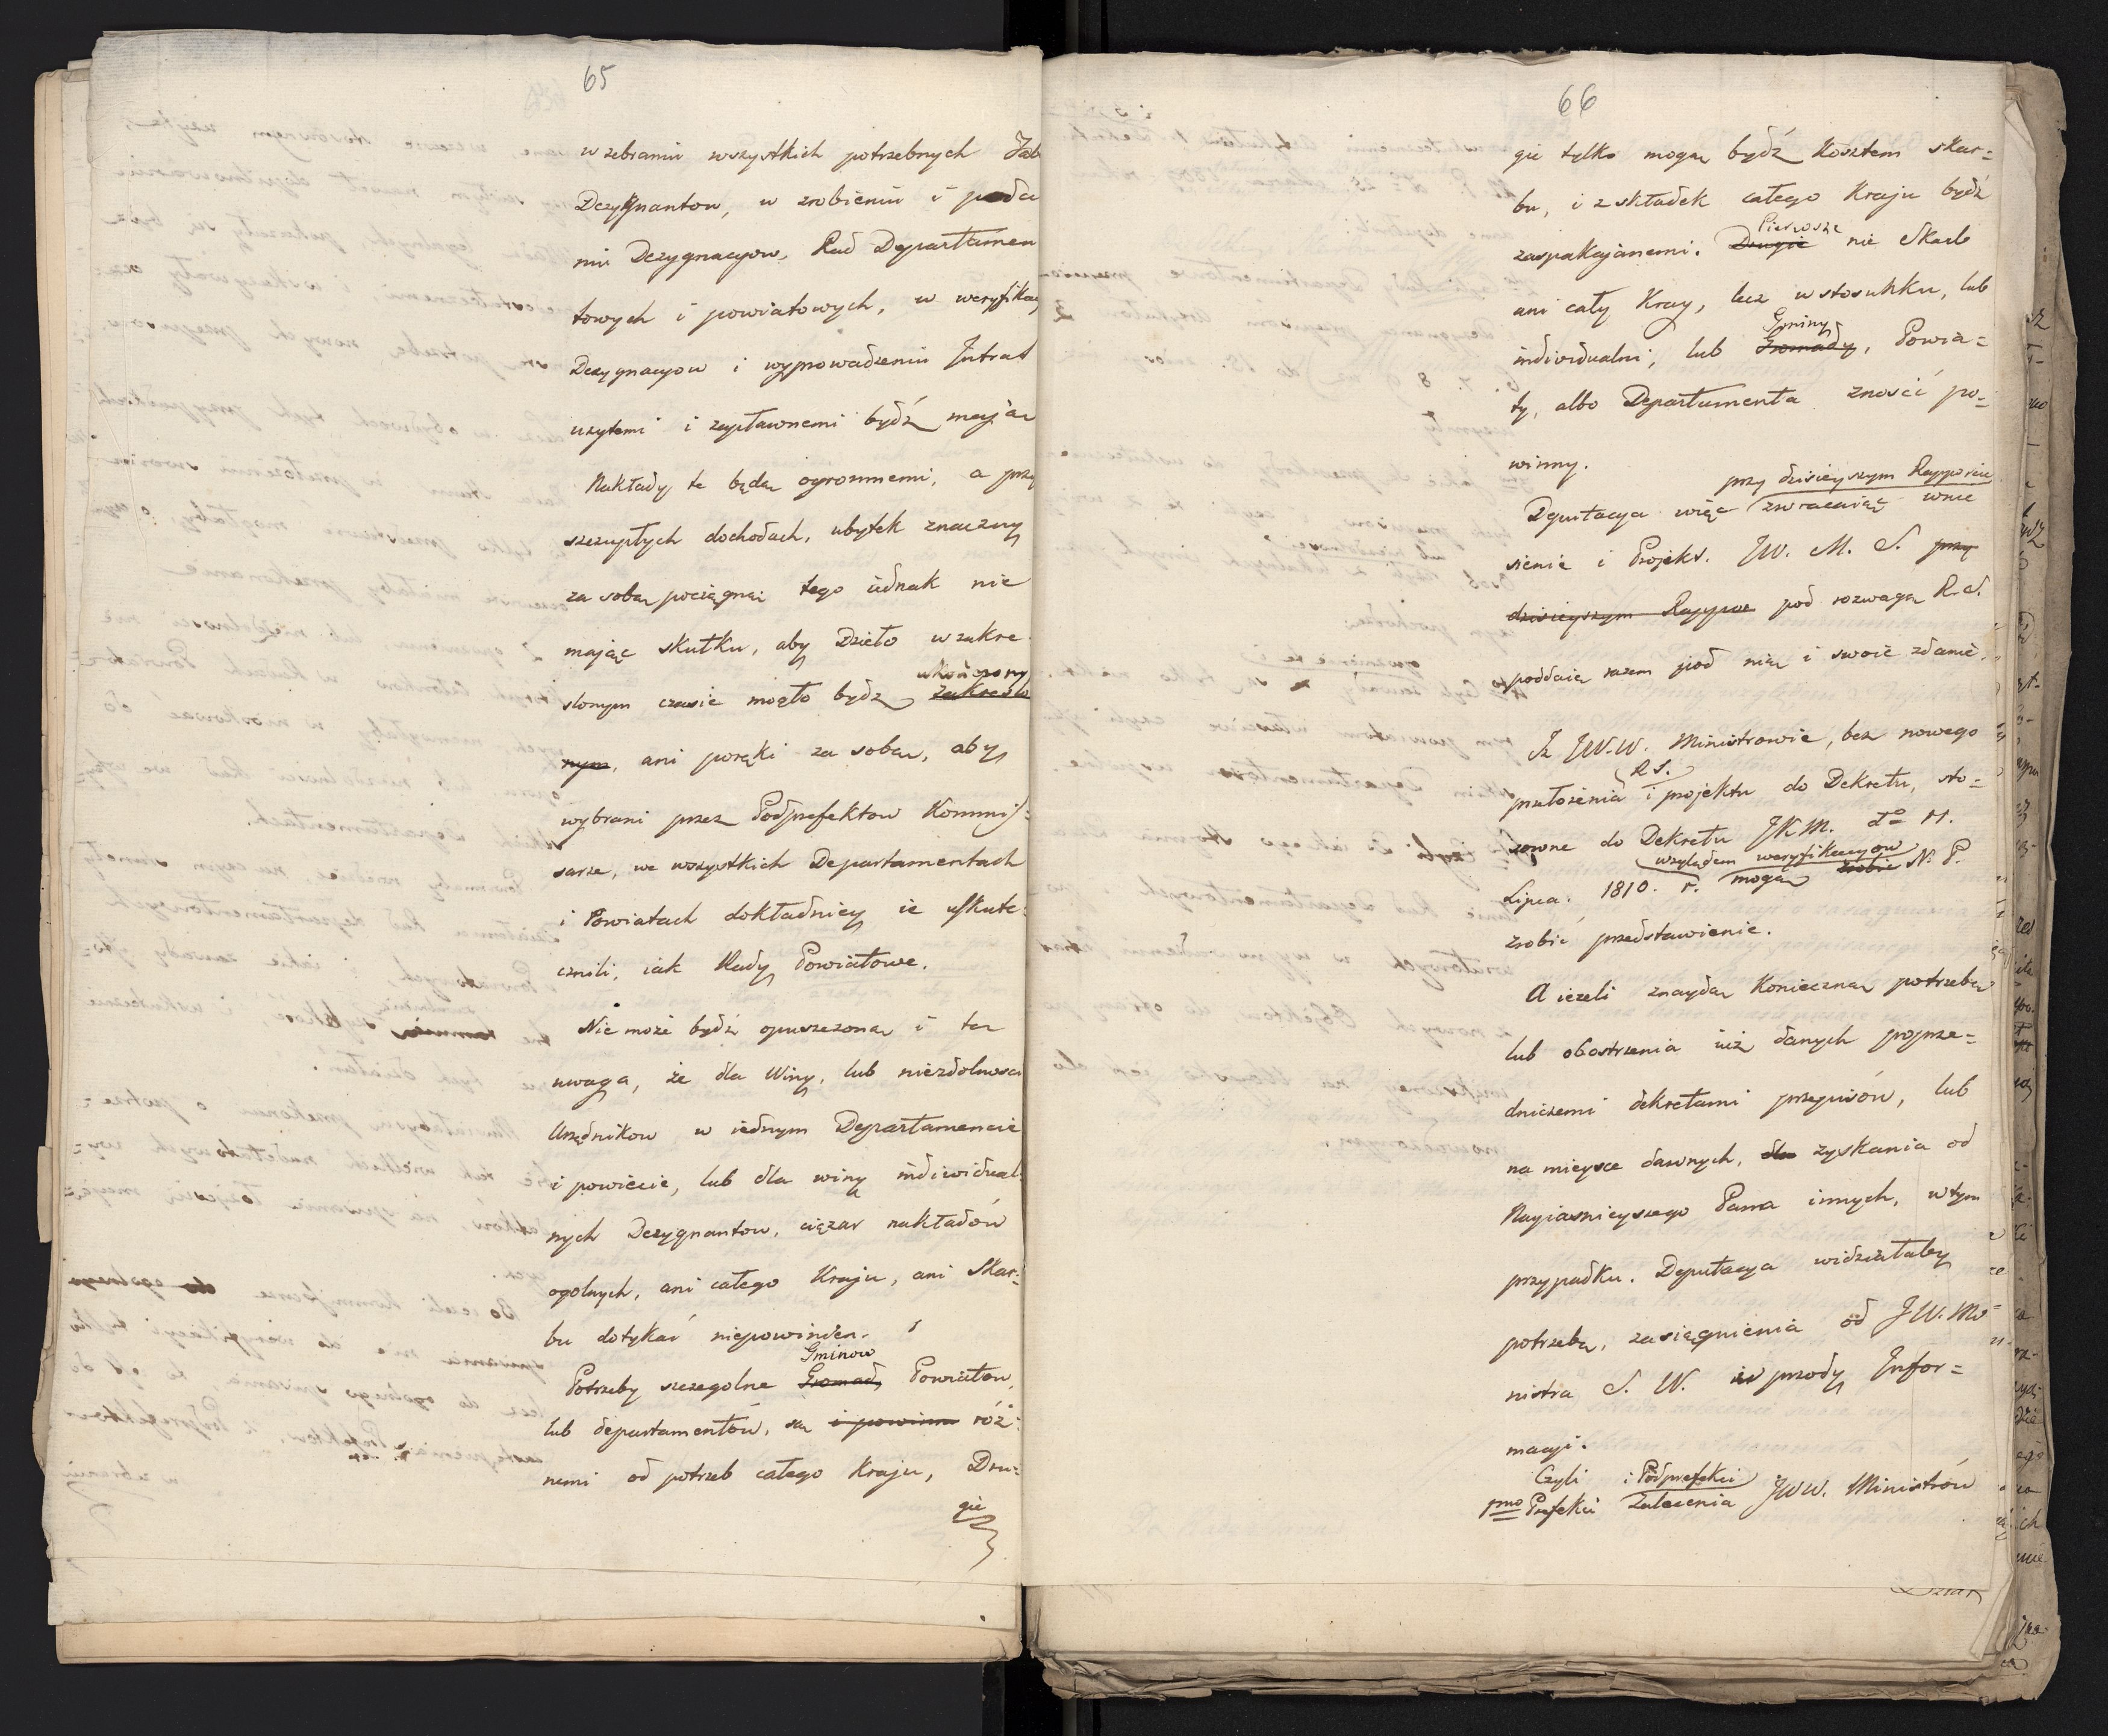 65
w zebraniu wszystkich potrzebnych Tab
Dezygnantow, w zrobieniu i poda
niu Dezygnacyow, Rad Departamen
towych i powiatowych, w weryfikacy
Dezygnacyow i wyprowadzeniu Intrat
użytemi i zapławnemi bydź mają
Nakłady te będą ogromnemi, a przy
szczupłych dochodach, ubytek znaczny
za sobą pociągną; tego iednak nie
mając skutku, aby Dzieło w zakre
ukończony
slonym czasie mogło bydź zakreślo
nym, ani poręki za sobą, aby
wybrani przez Podprefektow Kommis=
sarze, we wszystkich Departamentach
i Powiatach dokładniey ie uskute=
cznili, iak Rady Powiatowe.
Nie może bydź opuszczoną i ta
uwaga, że dla Winy, lub niezdolnosci
Urzędnikow w iednym Departamencie
i powiecie, lub dla winy indiwidual=
nych Dezygnantow, ciężar nakładów
ogolnych, ani całego Kraju, ani Skar=
bu dotykać niepowinien.
Gminow
Potrzeby szczegolne Gromad, Powiatow,
lub departamentów, są i powinne róż=
nemi od potrzeb całego Kraju, Dru=
gie
66
gie tylko mogą bydź Kosztem skar=
bu, i z składek całego Kraju bydź
Pierwsze
zaspakajanemi. Drugie nie Skarb
ani cały Kray, lecz w stosunku, lub
Gminy
indiwidualni, lub Gromady, Powia=
ty, albo Departamenta znosić po=
winny.
przy dzisieyszym Rapporcie
Deputacya więc zwracaiąc wnie
sienie i Projekt. JW. M. S. przy
dzisieyszym Rappor pod rozwagę R. S.
poddaie razem pod nią i swoie zdanie.
Iż JW.W. Ministrowie, bez nowego
R S.
przełożenia i projektu do Dekretu, sto=
sowne do Dekretu JKM. do 11.
względem weryfikacyow
Lipca. 1810. r. mogą zrobić N. P.
zrobić przedstawienie.
A ieżeli znaydą Konieczną potrzebę
lub obostrzenia iuż danych poprze=
dniczemi dekretami przepisów, lub
na mieysce dawnych, dla zyskania od
Nayiasnieyszego Pana innych, w tym
przypadku. Deputacya widziałaby
potrzebę, zasiągnienia od JW. Mi=
nistra S. W. w przody Infor=
macyi.
Czyli i Podprefekci
pmo Prefekci Zalecenia JWW. Ministrów